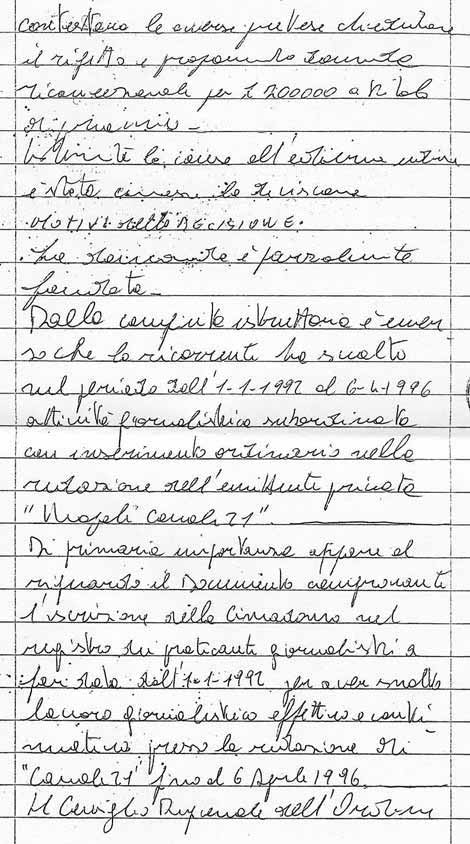 contestava le avverse pretese chiedendone
il rigetto e proponendo domanda
riconvenzionale per £ 200000 a titolo
di preavviso -
la causa all'odierna udienza
è stata la decisione
MOTIVI della DECISIONE.
La domanda è parzialmente
fondata -
Dalla compiuta istruttoria è emer-
so che la ricorrente ha svolto
nel periodo dall'1-1-1992 al 6-4-1996
attività giornalistica subordinata
con inserimento ordinario nella
redazione dell'emittente privata
"Napoli Canale 21".
Di primaria importanza appare al
riguardo il documento comprovante
l'iscrizione della nel
registro dei praticanti giornalisti a
far data dall'1-1-1992 per aver svolto
lavoro giornalistico effettivo e conti-
nuativo presso la redazione di
"Canale 21" fino al 6 Aprile 1996.
Il Consiglio Regionale dell'Ordine